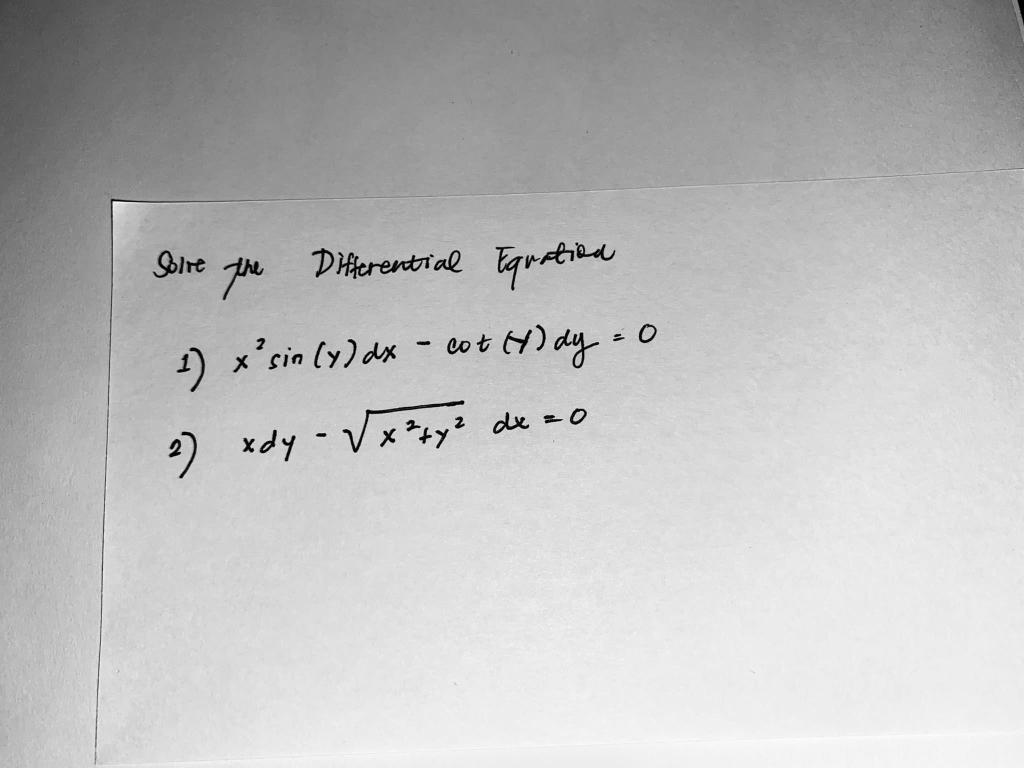 Solve the Differential Equation
1) x² sin (y) dx - cot (y) dy = 0
2) xdy - √(x²+y²) dx = 0